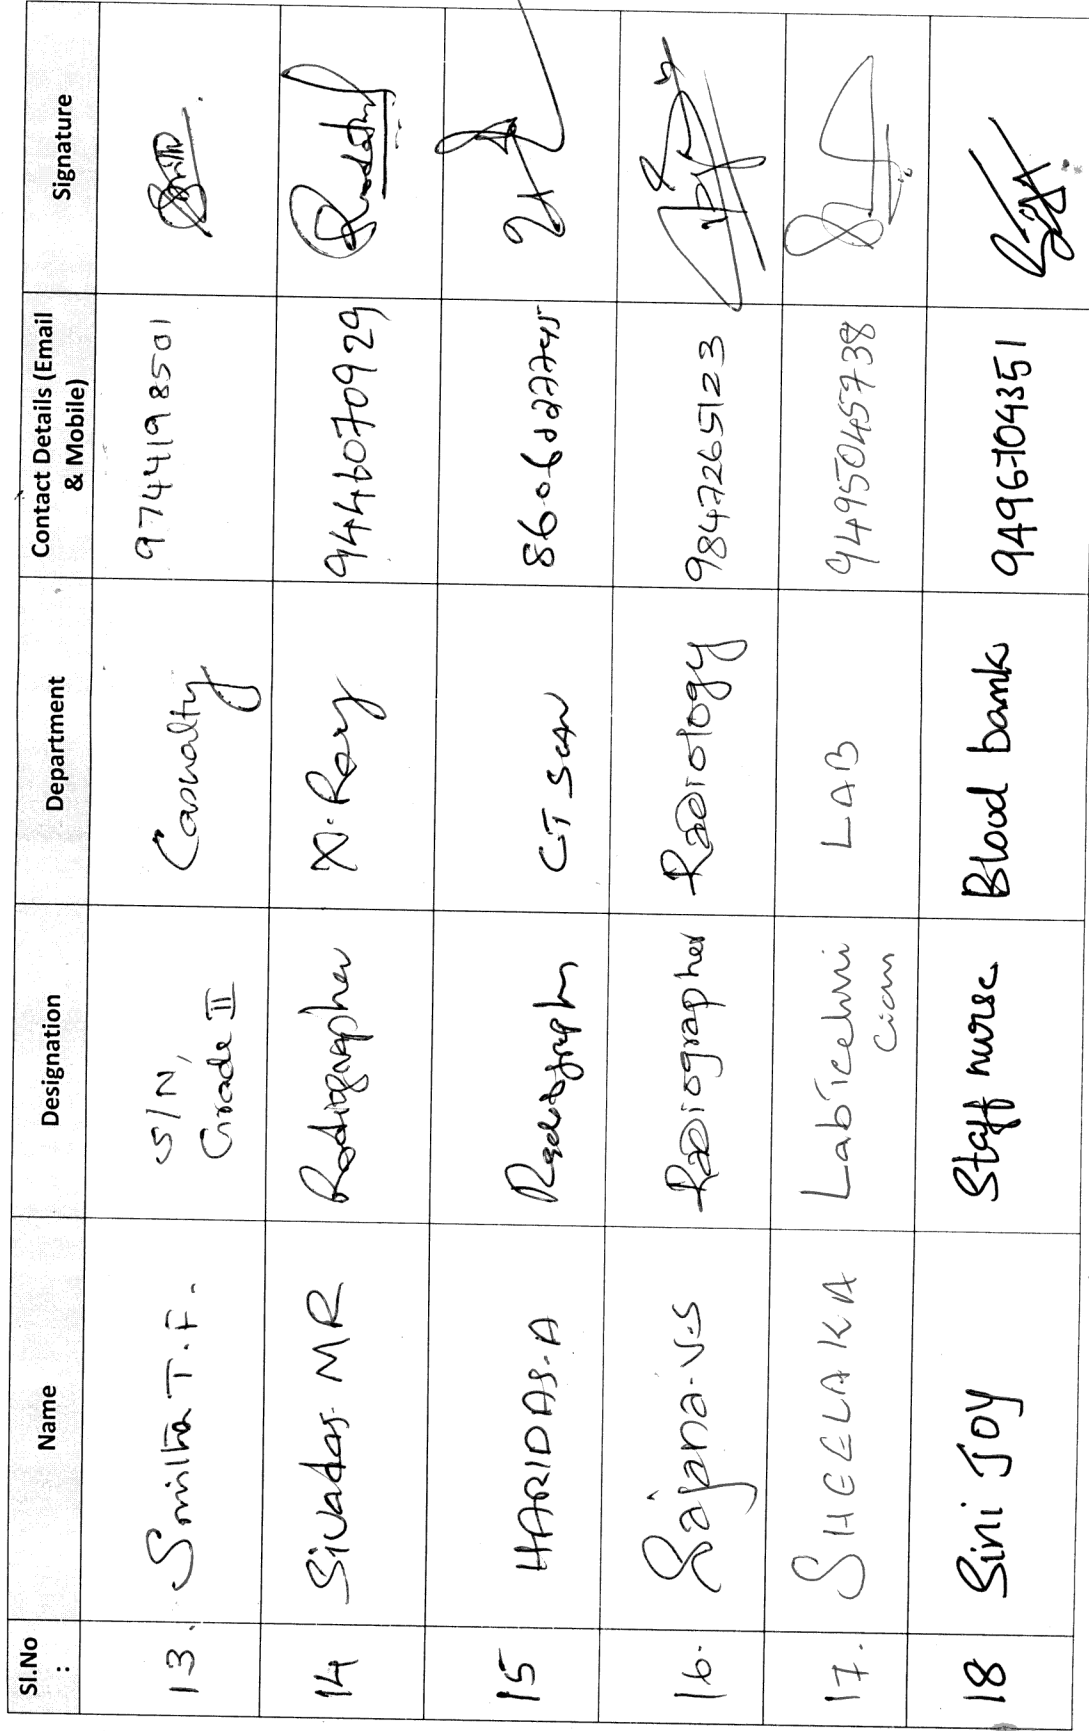 Sl.No : Name Designation Department Contact Details (Email & Mobile) Signature
13. Smitha T.F. S/N, Grade II Casualty 9744198501
14 Sivadas. MR Radiographer X-Ray 9446070929
15 HARIDAS.A Radiographer CT Scan
16. Sajana.V.S Radiographer Radiology 9847265123
17. SHEELA K A Lab Techni cian LAB 9495045738
18 Sini Joy Staff nurse Blood bank 9496704351